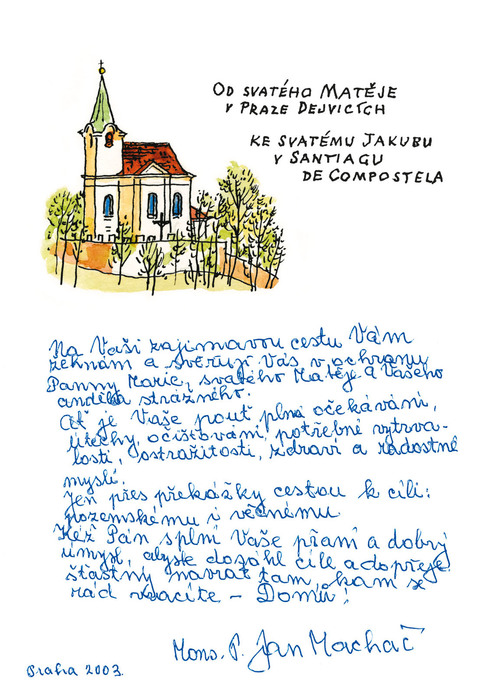 OD SVATÉHO MATĚJE
V PRAZE DEJVICÍCH
KE SVATÉMU JAKUBU
V SANTIAGU
DE COMPOSTELA
Na Vaši zajímavou cestu Vám
žehnám a svěřuji Vás v ochranu
Panny Marie, svatého Matěje a Vašeho
anděla strážného.
Ať je Vaše pouť plná očekávání,
útěchy, očišťování, potřebné vytrva-
losti, ostražitosti, zdraví a radostné
mysli.
Jen přes překážky cestou k cíli:
pozemskému i věčnému.
Kéž Pán splní Vaše přání a dobrý
úmysl, abyste dosáhl cíle a dopřeje
šťastný návrat tam, kam se
rád vracíte – Domů!
Mons. P. Jan Machač
Praha 2003.